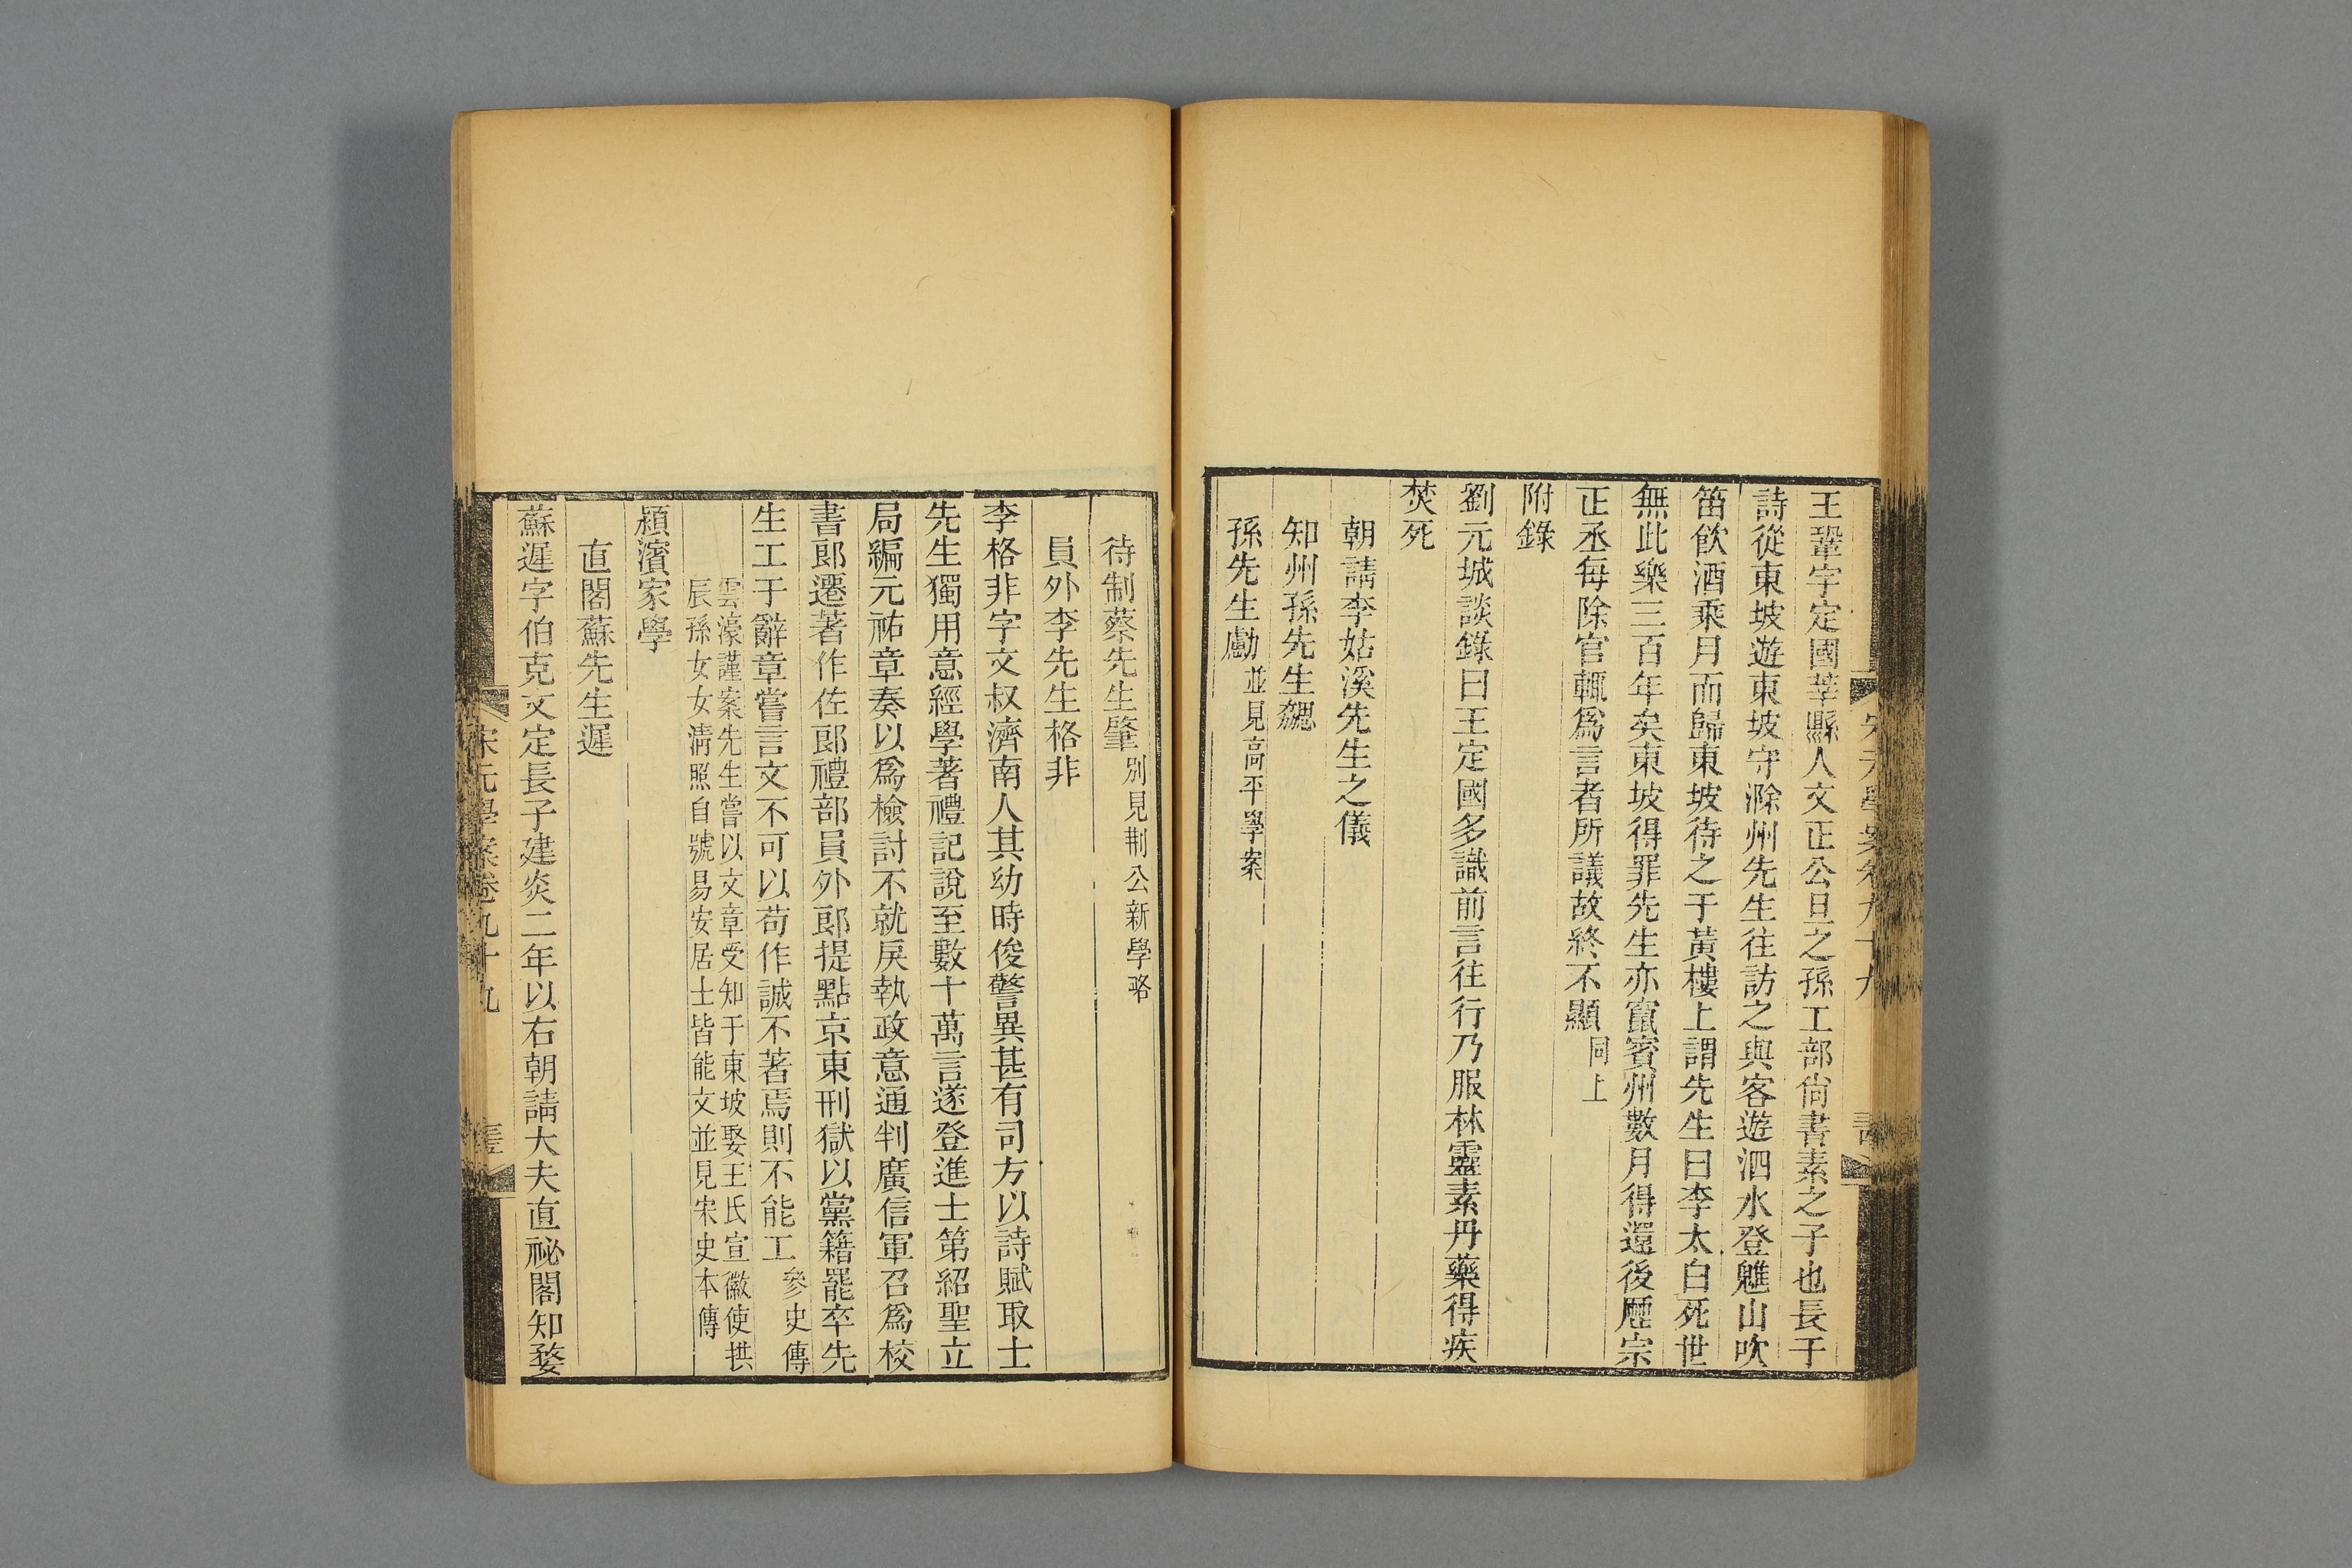 王鞏字定國莘縣人文正公旦之孫工部尙書素之子也長于
詩從東坡遊東坡守滁州先生往訪之與客遊泗水登魋山吹
笛飲酒乘月而歸東坡待之于黃樓上謂先生曰李太白死世
無此樂三百年矣東坡得罪先生亦竄賓州數月得還後歷宗
正丞每除官輒爲言者所議故終不顯同上
附錄
劉元城談錄曰王定國多識前言往行乃服林靈素丹藥得疾
焚死
朝請李姑溪先生之儀
知州孫先生勰
孫先生勴並見高平學案
待制蔡先生肇別見荆公新學略
員外李先生格非
李格非字文叔濟南人其幼時俊警異甚有司方以詩賦取士
先生獨用意經學著禮記說至數十萬言遂登進士第紹聖立
局編元祐章奏以爲檢討不就戾執政意通判廣信軍召爲校
書郎遷著作佐郎禮部員外郎提點京東刑獄以黨籍罷卒先
生工于辭章嘗言文不可以苟作誠不著焉則不能工參史傳
雲濠謹案先生嘗以文章受知于東坡娶王氏宣徽使拱
辰孫女女清照自號易安居士皆能文並見宋史本傳
潁濱家學
直閣蘇先生遲
蘇遲字伯克文定長子建炎二年以右朝請大夫直祕閣知婺
宋元學案卷九十九